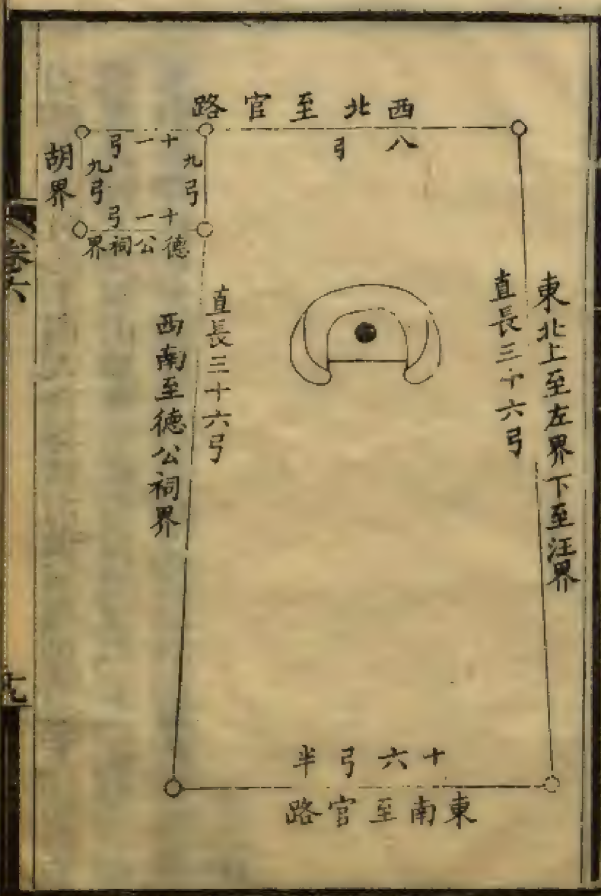 西北至官路
八弓
東北上至左界下至汪界
直長三十六弓
十一弓
九弓
九弓
十一弓
德公祠界
胡界
直長三十六弓
西南至德公祠界
十六弓半
東南至官路
卷六